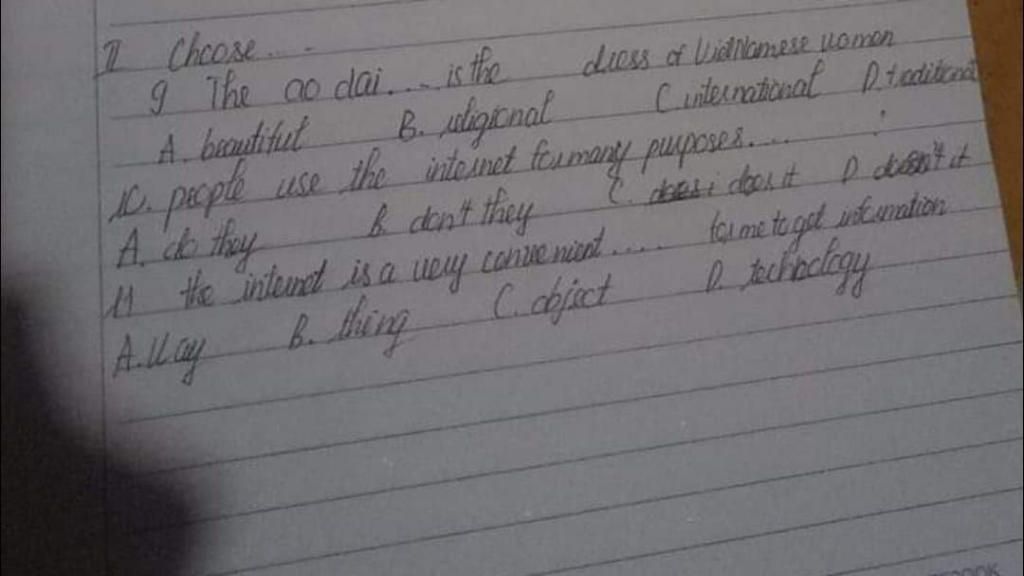 II Choose....
9 The ao dai.... is the dress of VietNamese women
A. beautiful B. religional C international D. traditional
10. people use the internet for many purposes....
A. do they B don't they C. does i does it D doesn't it
11 the internet is a very convenient..... for me to get information
A. way B. thing C. object D. technology